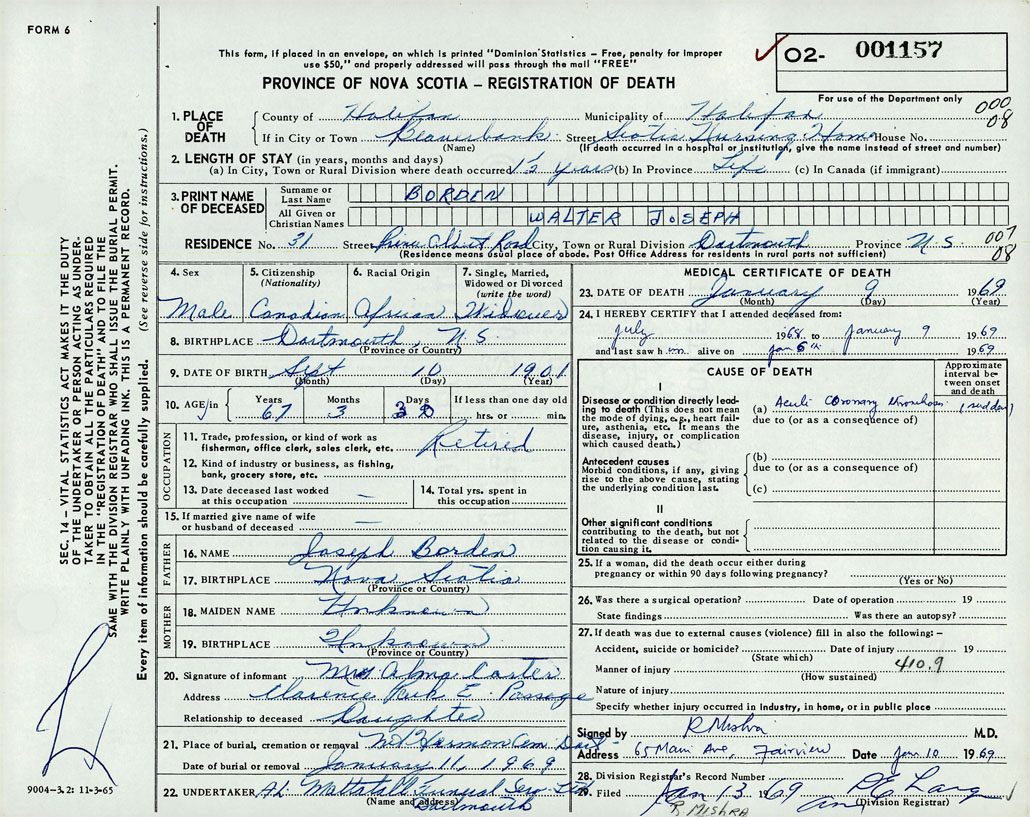 FORM 6
This form, if placed in an envelope, on which is printed "Dominion Statistics – Free, penalty for improper
use $50," and properly addressed will pass through the mail "FREE"
PROVINCE OF NOVA SCOTIA – REGISTRATION OF DEATH
O2- 001157
For use of the Department only
000
08
1. PLACE OF DEATH
County of Halifax Municipality of Halifax
If in City or Town Beaverbank Street Scotia Nursing Home House No.
(Name) (If death occurred in a hospital or institution, give the name instead of street and number)
2. LENGTH OF STAY (in years, months and days)
(a) In City, Town or Rural Division where death occurred 1½ years (b) In Province Life (c) In Canada (if immigrant)
3. PRINT NAME OF DECEASED
Surname or Last Name BORDEN
All Given or Christian Names WALTER JOSEPH
RESIDENCE No. 31 Street Prince Albert Road City, Town or Rural Division Dartmouth Province N.S. 007
08
(Residence means usual place of abode. Post Office Address for residents in rural parts not sufficient)
4. Sex
Male
5. Citizenship
(Nationality)
Canadian
6. Racial Origin
African
7. Single, Married,
Widowed or Divorced
(write the word)
Widower
8. BIRTHPLACE Dartmouth, N.S.
(Province or Country)
9. DATE OF BIRTH Sept 10 1901
(Month) (Day) (Year)
10. AGE in Years 67 Months 3 Days 30 If less than one day old
hrs. or min.
OCCUPATION
11. Trade, profession, or kind of work as
fisherman, office clerk, sales clerk, etc. Retired
12. Kind of industry or business, as fishing,
bank, grocery store, etc.
13. Date deceased last worked
at this occupation –
14. Total yrs. spent in
this occupation
15. If married give name of wife
or husband of deceased –
FATHER
16. NAME Joseph Borden
17. BIRTHPLACE Nova Scotia
(Province or Country)
MOTHER
18. MAIDEN NAME Unknown
19. BIRTHPLACE Unknown
(Province or Country)
20. Signature of informant Mrs Alma Carter
Address Clarence Park E. Passage
Relationship to deceased Daughter
21. Place of burial, cremation or removal Mt Hermon Cem Dart
Date of burial or removal January 11, 1969
22. UNDERTAKER Mattatall Funeral Ser Ltd
(Name and address) Dartmouth
MEDICAL CERTIFICATE OF DEATH
23. DATE OF DEATH January 9 1969
(Month) (Day) (Year)
24. I HEREBY CERTIFY that I attended deceased from:
July 1968 to January 9 1969
and last saw him alive on Jan 6th 1969
CAUSE OF DEATH
Approximate
interval be-
tween onset
and death
I
Disease or condition directly lead-
ing to death (This does not
mean the mode of dying, e.g., heart fail-
ure, asthenia, etc. It means the
disease, injury, or complication
which caused death.)
(a) Acute Coronary thrombosis (sudden)
due to (or as a consequence of)
Antecedent causes
Morbid conditions, if any, giving
rise to the above cause, stating
the underlying condition last.
(b)
due to (or as a consequence of)
(c)
II
Other significant conditions
contributing to the death, but not
related to the disease or condi-
tion causing it.
25. If a woman, did the death occur either during
pregnancy or within 90 days following pregnancy?
(Yes or No)
26. Was there a surgical operation? Date of operation 19
State findings Was there an autopsy?
27. If death was due to external causes (violence) fill in also the following: –
Accident, suicide or homicide? Date of injury 19
(State which)
Manner of injury 410.9
(How sustained)
Nature of injury
Specify whether injury occurred in industry, in home, or in public place
Signed by R Mishra M.D.
Address 65 Main Ave, Fairview Date Jan 10 1969
28. Division Registrar's Record Number
29. Filed Jan 13 1969 Lang
(Division Registrar)
R. MISHRA
SEC. 14 – VITAL STATISTICS ACT MAKES IT THE DUTY
OF THE UNDERTAKER OR PERSON ACTING AS UNDER-
TAKER TO OBTAIN ALL THE PARTICULARS REQUIRED
IN THE "REGISTRATION OF DEATH" AND TO FILE THE
SAME WITH THE DIVISION REGISTRAR WHO SHALL ISSUE THE BURIAL PERMIT.
WRITE PLAINLY WITH UNFADING INK. THIS IS A PERMANENT RECORD.
Every item of information should be carefully supplied. (See reverse side for instructions.)
9004-3.2: 11-3-65